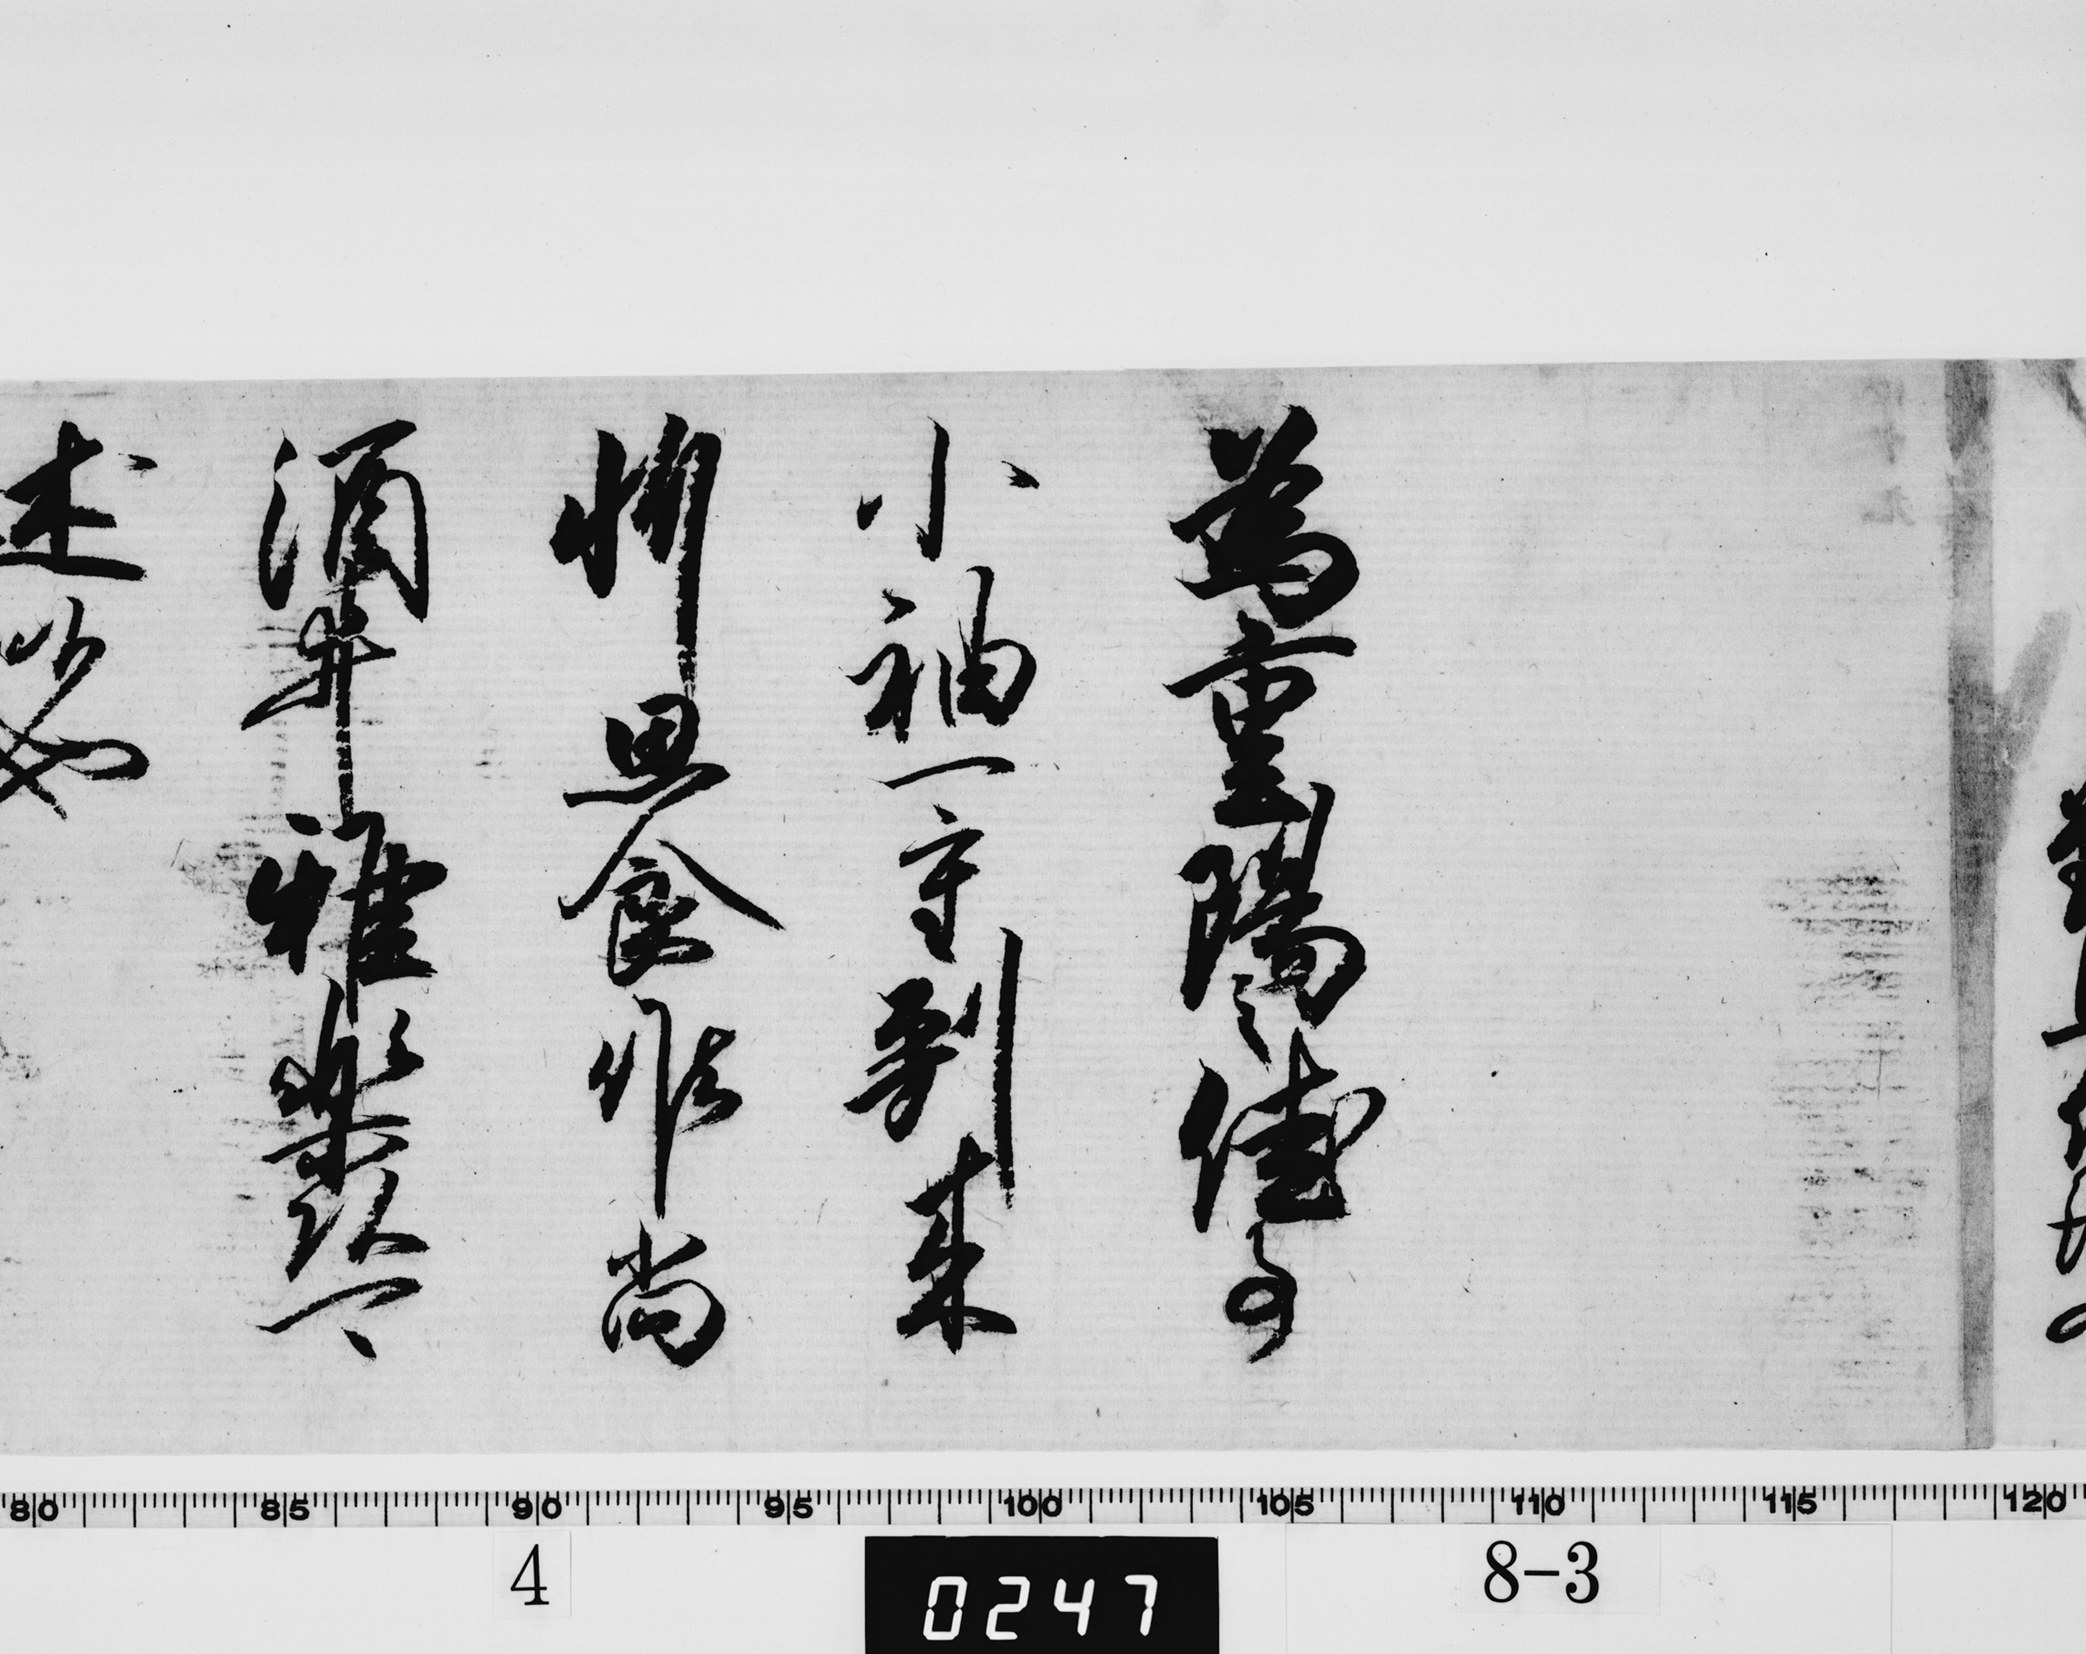 為重陽之佳事
小袖一重到来
悦思食作尚
酒井雅楽頭可
述也
80 85 90 95 100 105 110 115 120
4
0247
8-3